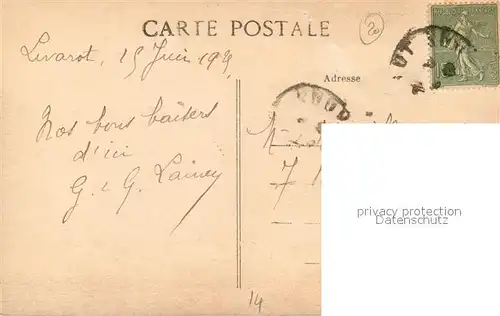 CARTE POSTALE
20
Livarot, 15 Juin 192
Adresse
Nos bons baisers
d'ici
G. & G. Lainey
M.
7
14
privacy protection
Datenschutz